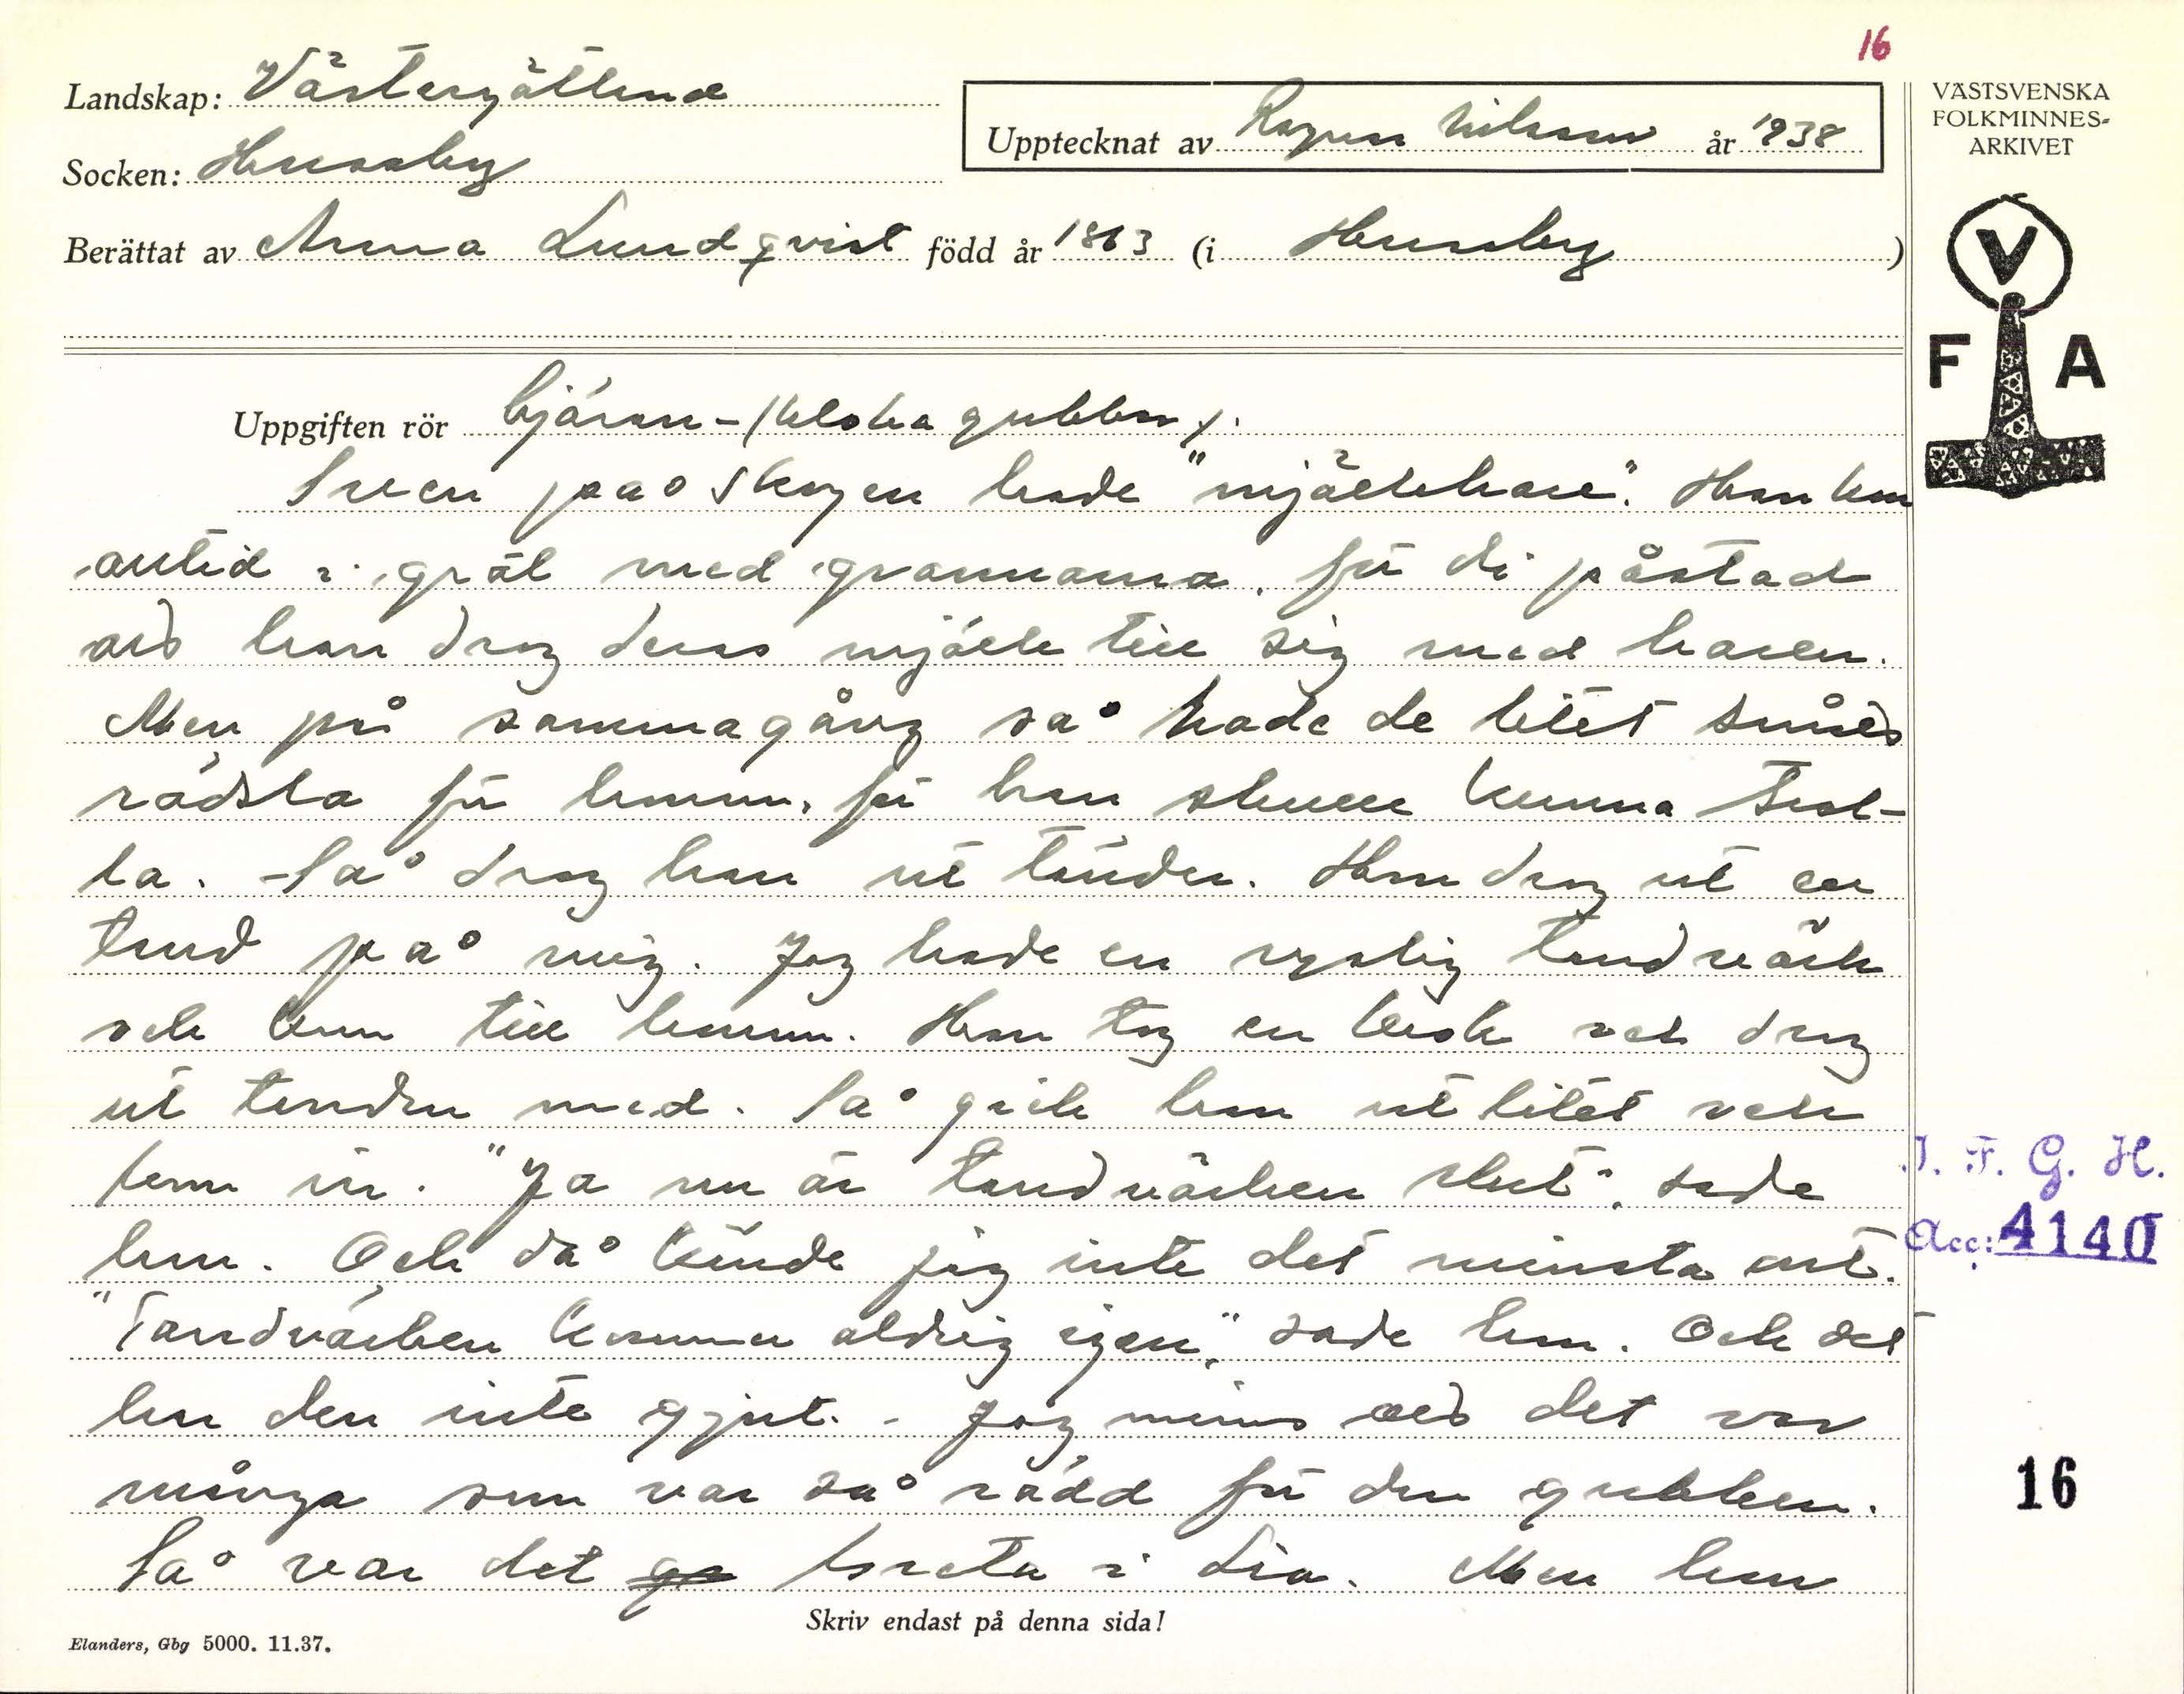 16
Landskap: Västergötland
Upptecknat av Ragnar Nilsson år 1938
Socken: Husaby
Berättat av Anna Lundqvist född år 1863 (i Husaby)
VÄSTSVENSKA
FOLKMINNES-
ARKIVET
V
F A
Uppgiften rör bjäran - kloka gubbar.
Sven på Skogen hade "mjölkhare". Han kom
alltid i gräl med grannarna, för di påstod
att han drog deras mjölk till sig med haren.
Men på samma gång så hade de litet
rädsla för honom, för han skulle kunna troll-
la. - Så drog han ut tänder. Han drog ut en
tand på mig. Jag hade en ryslig tandvärk
och kom till honom. Han tog en krok och drog
ut tanden med. Så gick han ut litet och
kom in. "Ja nu är tandvärken slut", sade
han. Och då kände jag inte det minsta ont.
"Tandvärken kommer aldrig igen", sade han. Och det
har den inte gjort. - Jag minns att det var
många som var så rädd för den gubben.
Så var det Greta i Lia. Men hon
Skriv endast på denna sida!
Elanders, Gbg 5000. 11.37.
I. F. G. H.
Acc: 4140
16